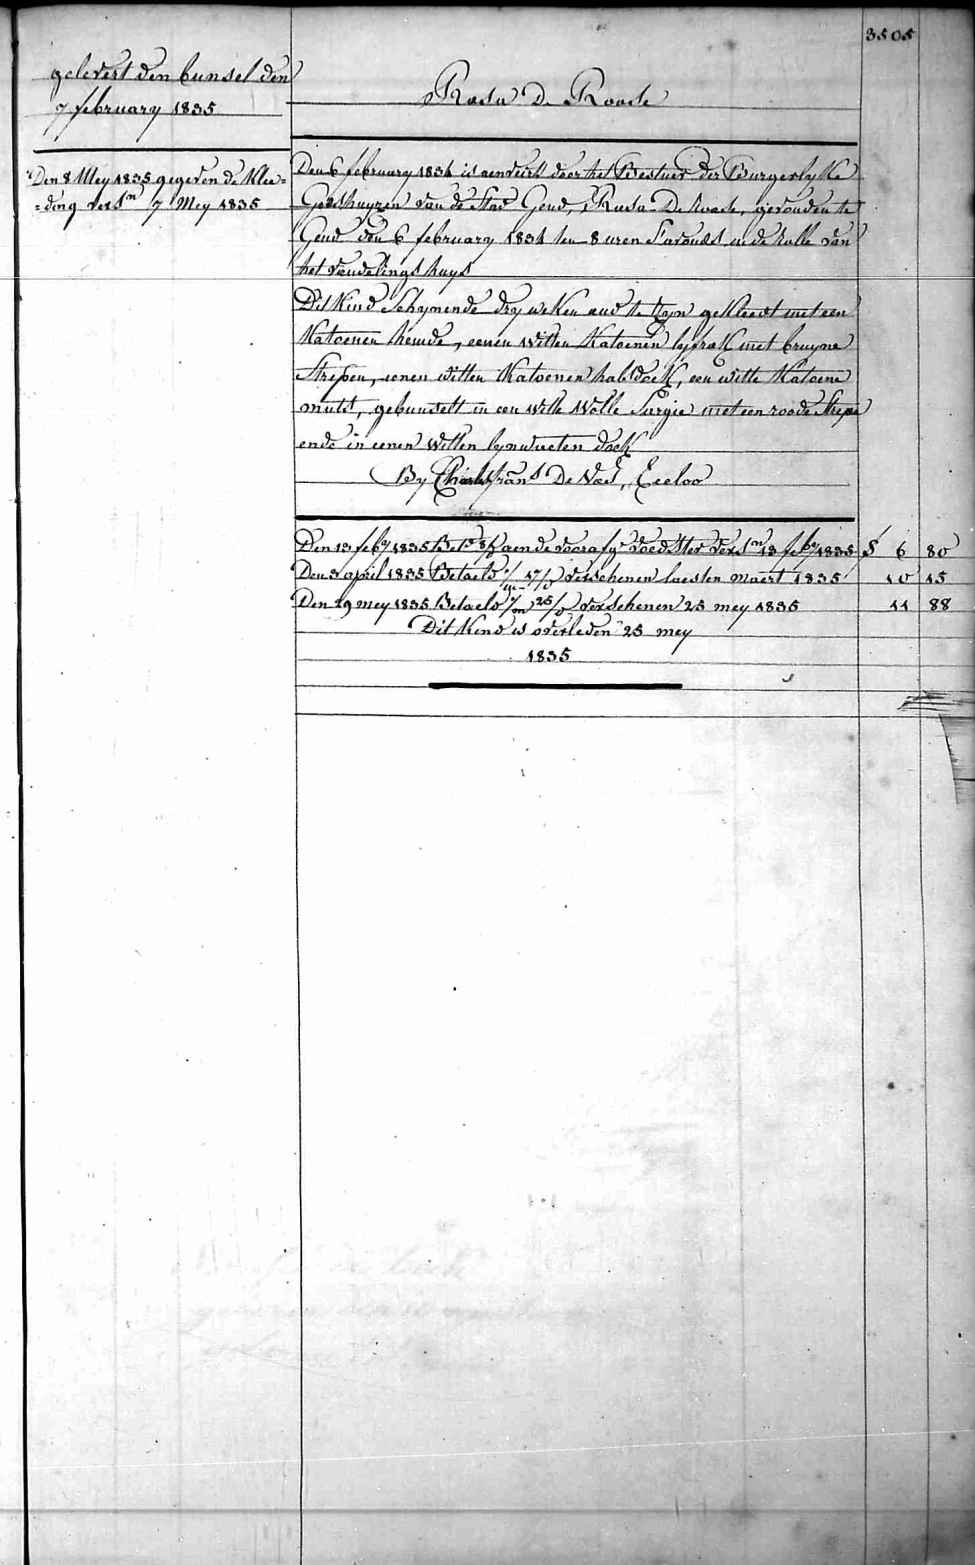 3505
gelevert den bunsel den
7 february 1835
Rosa De Roode
Den 8 Mey 1835 gegeven de klee=
=ding vers.m 7 Mey 1835
Den 6 february 1834 is aenveird door het Bestuer der Burgerlyke
Godshuyzen van de Stad Gend, Rosa De Roode, gevonden te
Gend den 6 february 1834 ten 8 uren s'avonds in de rolle van
het vondelings huys
Dit Kind Schynende dry weken oud te zyn gekleedt met een
Katoenen hemde, eenen witten Katoenen lyfrok met bruyne
Strepen, eenen witten Katoenen halsdoek, een witte Katoene
muts, gebunselt in een witte Wolle Sargie met een roode Strepe
ende in eenen witten lynwaeten doek
By Charles frans De Vos, Eecloo
Den 13 feb.y 1835 Bet.d aen de voorafg.e voedster vers.m 13 feb.y 1835 f 6 80
Den 3 april 1835 Betaeld 17/ verschenen laesten maert 1835 10 15
Den 29 mey 1835 Betaeld 25/ verschenen 25 mey 1835 11 88
Dit Kind is overleden 25 mey
1835